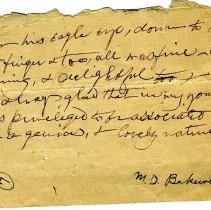 his eagle eye, down to
finger & toe, all was fine
& delightful too
always glad that in my
privileged to associated
a genius, & lovely nature
M. D. Bakew